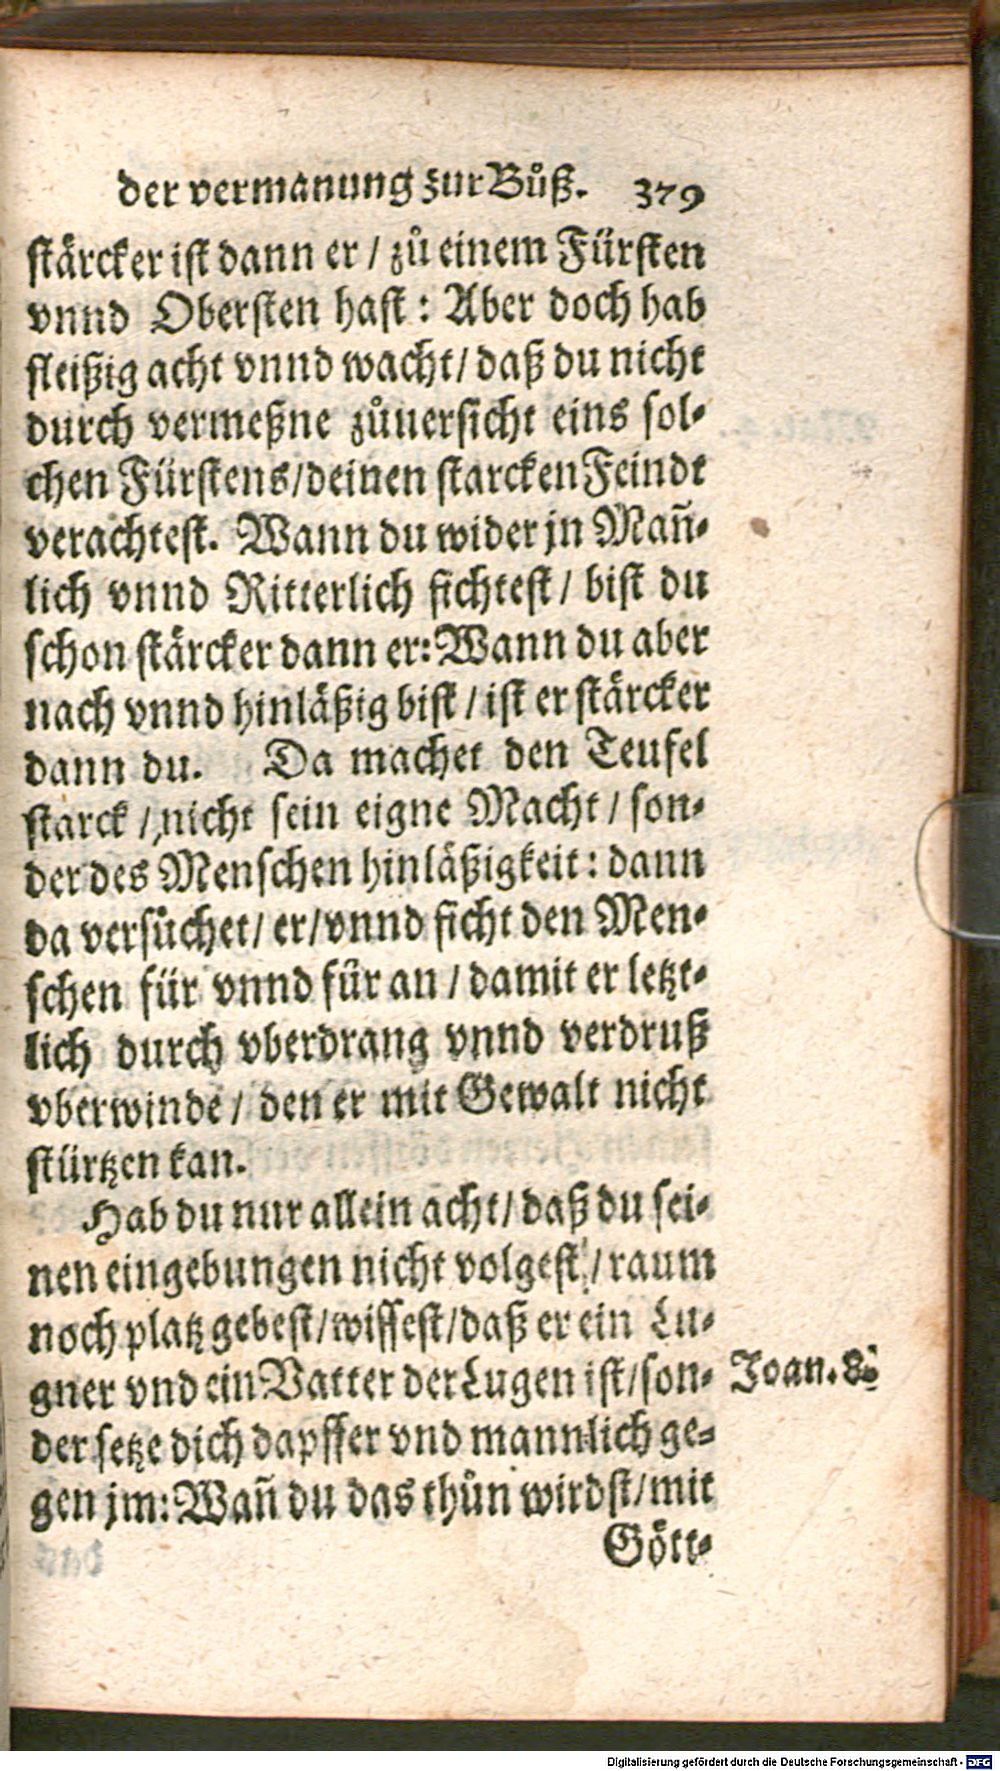 der vermanung zur Bůß. 379
stärcker ist dann er / zů einem Fürsten
vnnd Obersten hast : Aber doch hab
fleißig acht vnnd wacht / daß du nicht
durch vermeßne zůuersicht eins sol-
chen Fürstens / deinen starcken Feindt
verachtest. Wann du wider jn Mañ-
lich vnnd Ritterlich fichtest / bist du
schon stärcker dann er: Wann du aber
nach vnnd hinläßig bist / ist er stärcker
dann du. Da machet den Teufel
starck / nicht sein eigne Macht / son-
der des Menschen hinläßigkeit : dann
da versůchet / er / vnnd ficht den Men-
schen für vnnd für an / damit er letzt-
lich durch vberdrang vnnd verdruß
vberwinde / den er mit Gewalt nicht
stürtzen kan.
Hab du nur allein acht / daß du sei-
nen eingebungen nicht volgest / raum
noch platz gebest / wissest / daß er ein Lu-
gner vnd ein Vatter der Lugen ist / son-
Joan. 8.
der setze dich dapffer vnd mannlich ge-
gen jm: Wañ du das thůn wirdst / mit
Gött-
Digitalisierung gefördert durch die Deutsche Forschungsgemeinschaft - DFG